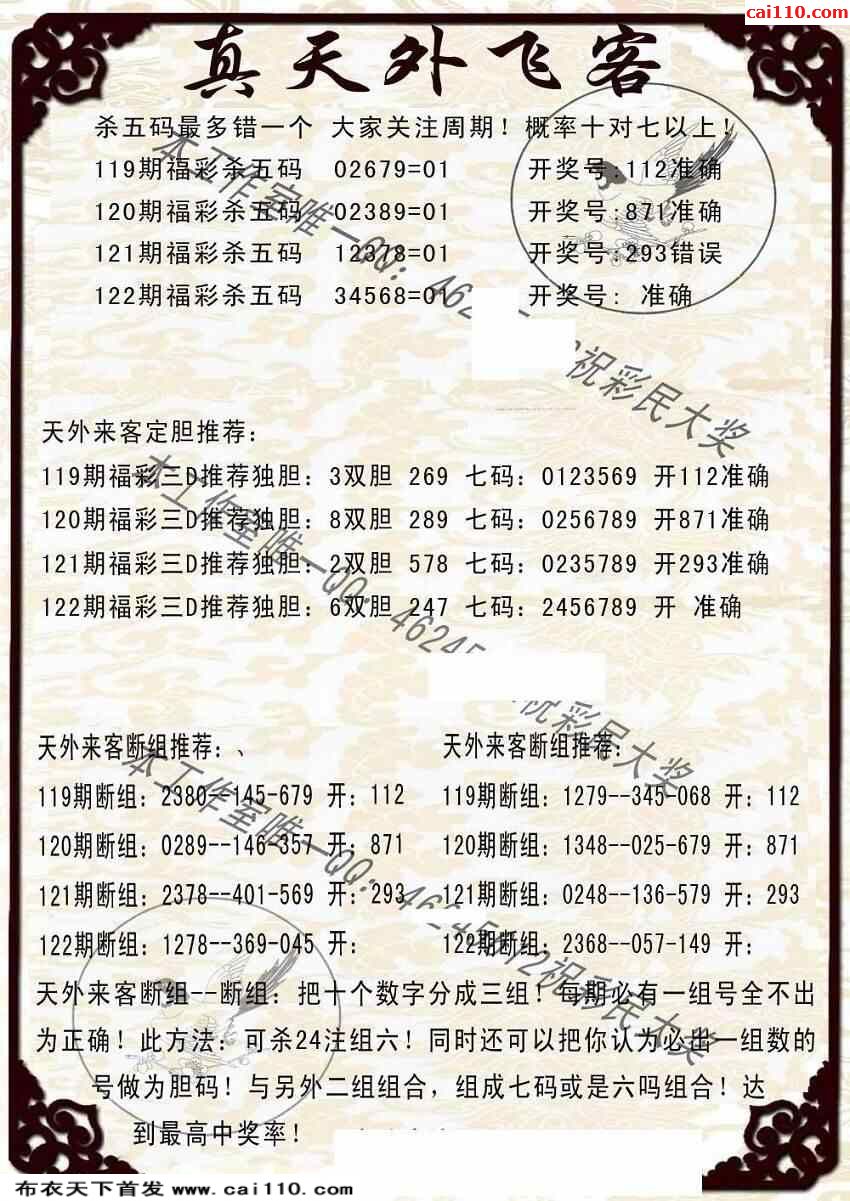 cai110.com
真天外飞客
杀五码最多错一个 大家关注周期！概率十对七以上！
119期福彩杀五码 02679=01 开奖号:112准确
120期福彩杀五码 02389=01 开奖号:871准确
121期福彩杀五码 12378=01 开奖号:293错误
122期福彩杀五码 34568=01 开奖号: 准确
本工作室唯一QQ: 462
祝彩民大奖
天外来客定胆推荐：
119期福彩三D推荐独胆：3双胆 269 七码：0123569 开112准确
120期福彩三D推荐独胆：8双胆 289 七码：0256789 开871准确
121期福彩三D推荐独胆：2双胆 578 七码：0235789 开293准确
122期福彩三D推荐独胆：6双胆 247 七码：2456789 开 准确
本工作室唯一QQ: 46245
祝彩民大奖
天外来客断组推荐：、
119期断组：2380--145-679 开：112
120期断组：0289--146-357 开：871
121期断组：2378--401-569 开：293
122期断组：1278--369-045 开：
天外来客断组推荐：
119期断组：1279--345-068 开：112
120期断组：1348--025-679 开：871
121期断组：0248--136-579 开：293
122期断组：2368--057-149 开：
本工作室唯一QQ: 祝彩民大奖
天外来客断组--断组：把十个数字分成三组！每期必有一组号全不出
为正确！此方法：可杀24注组六！同时还可以把你认为必出一组数的
号做为胆码！与另外二组组合，组成七码或是六吗组合！达
到最高中奖率！
布衣天下首发 www.cai110.com